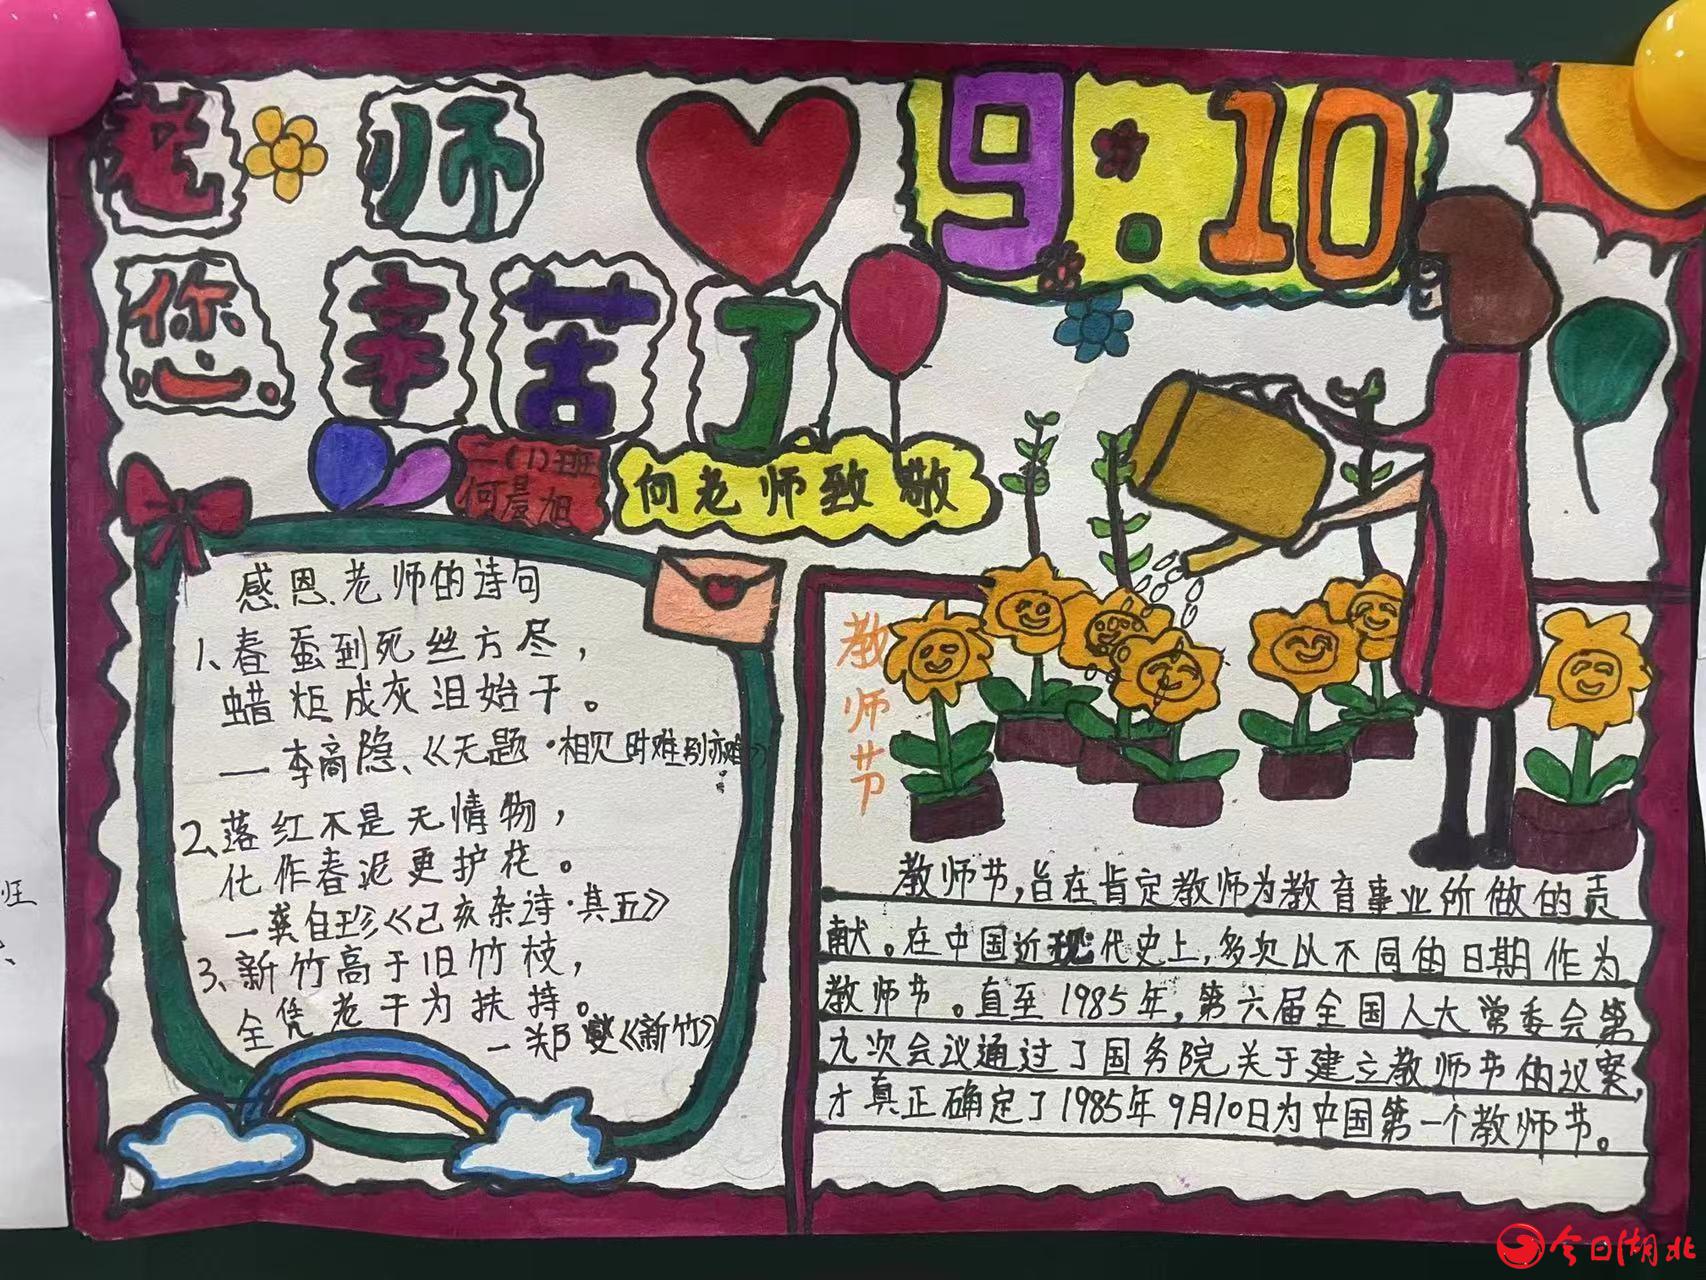 老师
9.10
您辛苦了
二(1)班
何晨旭
向老师致敬
感恩老师的诗句
1、春蚕到死丝方尽，
蜡炬成灰泪始干。
—李商隐、《无题·相见时难别亦难》。
2、落红不是无情物，
化作春泥更护花。
—龚自珍《己亥杂诗·其五》
3、新竹高于旧竹枝，
全凭老干为扶持。
—郑燮《新竹》
教师节
教师节，旨在肯定教师为教育事业所做的贡
献。在中国近现代史上，多次以不同的日期作为
教师节。直至1985年，第六届全国人大常委会第
九次会议通过了国务院关于建立教师节的议案，
才真正确定了1985年9月10日为中国第一个教师节。
今日湖北